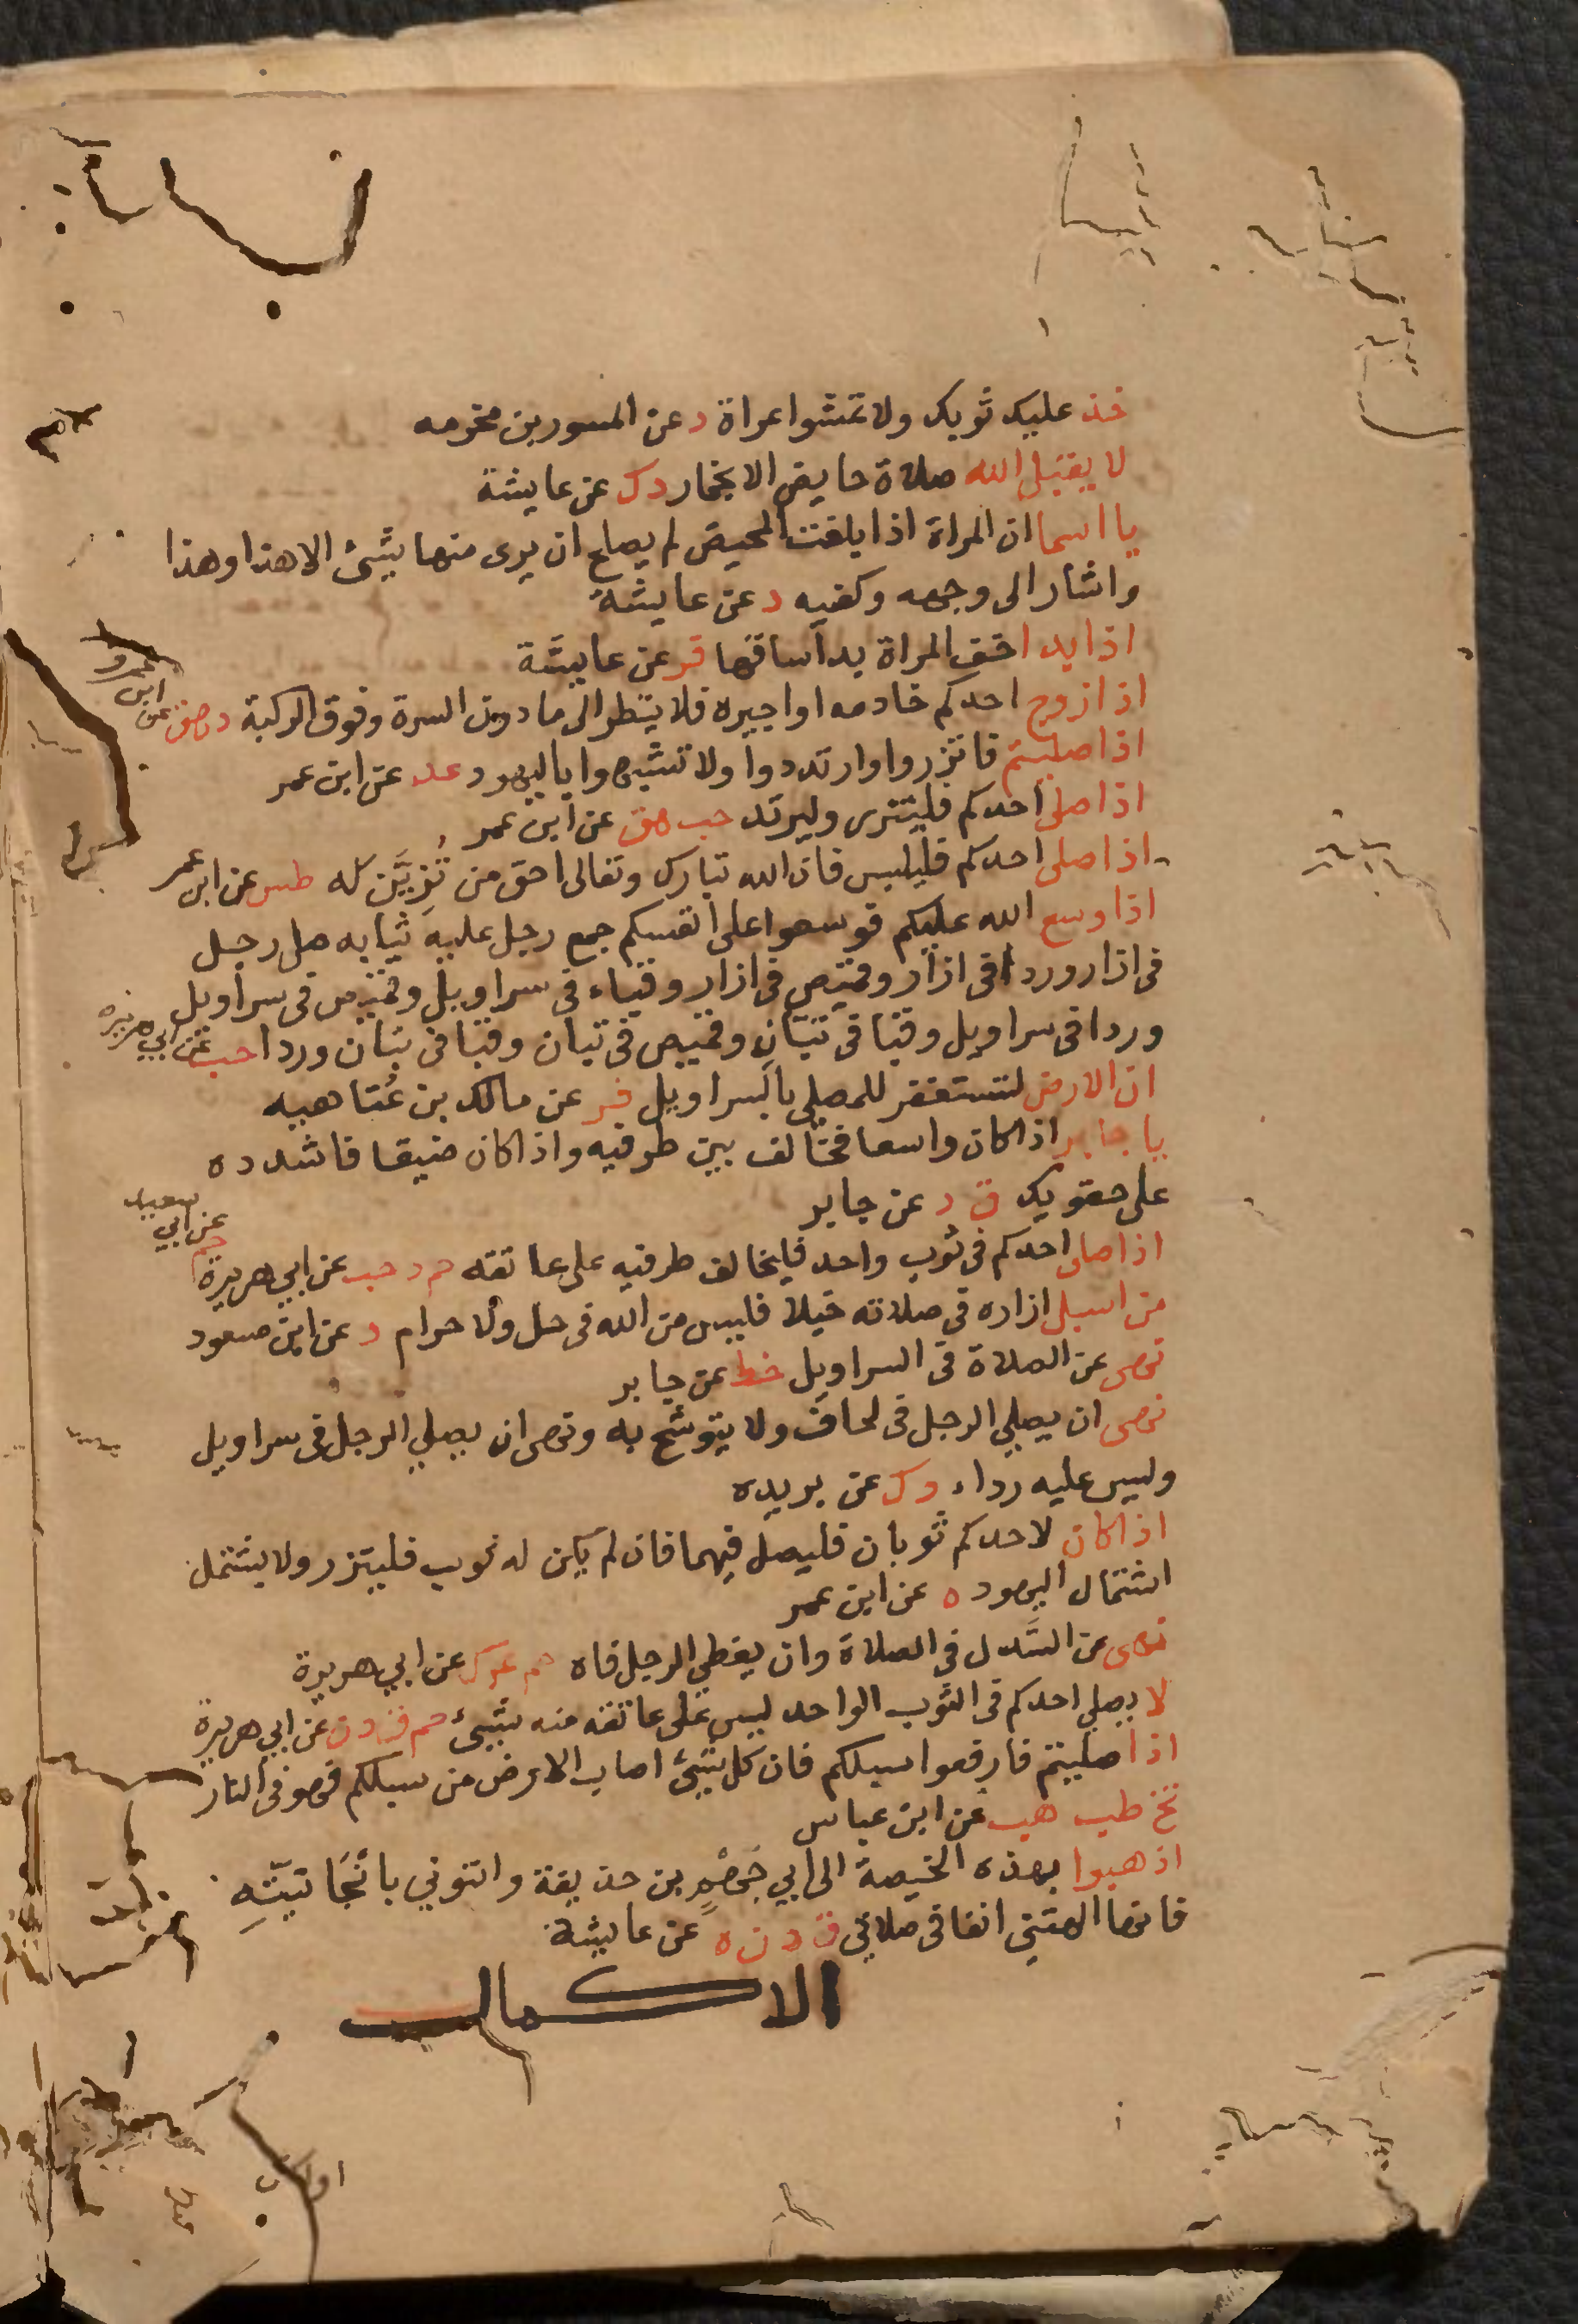 خذ عليك ثوبك ولا تمشوا عراة د عن المسور بن مخرمه
لا يقبل الله صلاة حايض الا بخمار د ك عن عايشة
يا اسما ان المراة اذا بلغت المحيض لم يصلح ان يرى منها شيئ الا هذا وهذا
واشار الى وجهه وكفيه د عن عايشة
اذا بدا خف المراة بدا ساقها فر عن عايشة
اذا زوج احدكم خادمه او اجيره فلا ينظر الى ما دون السرة وفوق الركبة د هق عن ابن عمرو
اذا صليتم فاتزروا وارتدوا ولا تشبهوا باليهود عد عن ابن عمر
اذا صلى احدكم فليتزر وليرتد حب هق عن ابن عمر
اذا صلى احدكم فليلبس فان الله تبارك وتعالى احق من تَزيَّن له طس عن ابن عمر
اذا وسع الله عليكم فوسعوا على انفسكم جمع رجل عليه ثيابه صلى رجل
فى ازار وردا فى ازار وقميص فى ازار وقباء فى سراويل وقميص فى سراويل
وردا فى سراويل وقبا فى تبان وقميص فى تبان وقبا فى تبان وردا حب عن ابي هريره
ان الارض لتستغفر للمصلي بالسراويل فر عن مالك بن عُتاهيه
يا جابر اذا كان واسعا فخالف بين طرفيه واذا كان ضيقا فاشدده
على حقويك ق د عن جابر
اذا صلى احدكم فى ثوب واحد فليخالف طرفيه على عاتقه حم د حب عن ابي هريرة حم عن ابي سعيد
من اسبل ازاره فى صلاته خيلا فليس من الله فى حل ولا حرام د عن ابن مسعود
نهى عن الصلاة فى السراويل خط عن جابر
نهى ان يصلي الرجل فى لحاف ولا يتوشح به ونهى ان يصلي الرجل فى سراويل
وليس عليه رداء د ك عن بريده
اذا كان لاحدكم ثوبان فليصل فيهما فان لم يكن له ثوب فليتزر ولا يشتمل
اشتمال اليهود ه عن ابن عمر
نهى عن السَّدل فى الصلاة وان يغطي الرجل فاه حم عو ك عن ابي هريرة
لا يصلي احدكم فى الثوب الواحد ليس على عاتقه منه شيئ حم ق د ن عن ابي هريرة
اذا صليتم فارفعوا سبلكم فان كل شيئ اصاب الارض من سبلكم فهو فى النار
تخ طب هب عن ابن عباس
اذهبوا بهذه الخميصة الى ابي جَهْمٍ بن حذيفة واتتوني بانْبَجَانيّتِهِ
فانها الهتني انفا فى صلاتي ق د ن ه عن عايشة
الاكمال